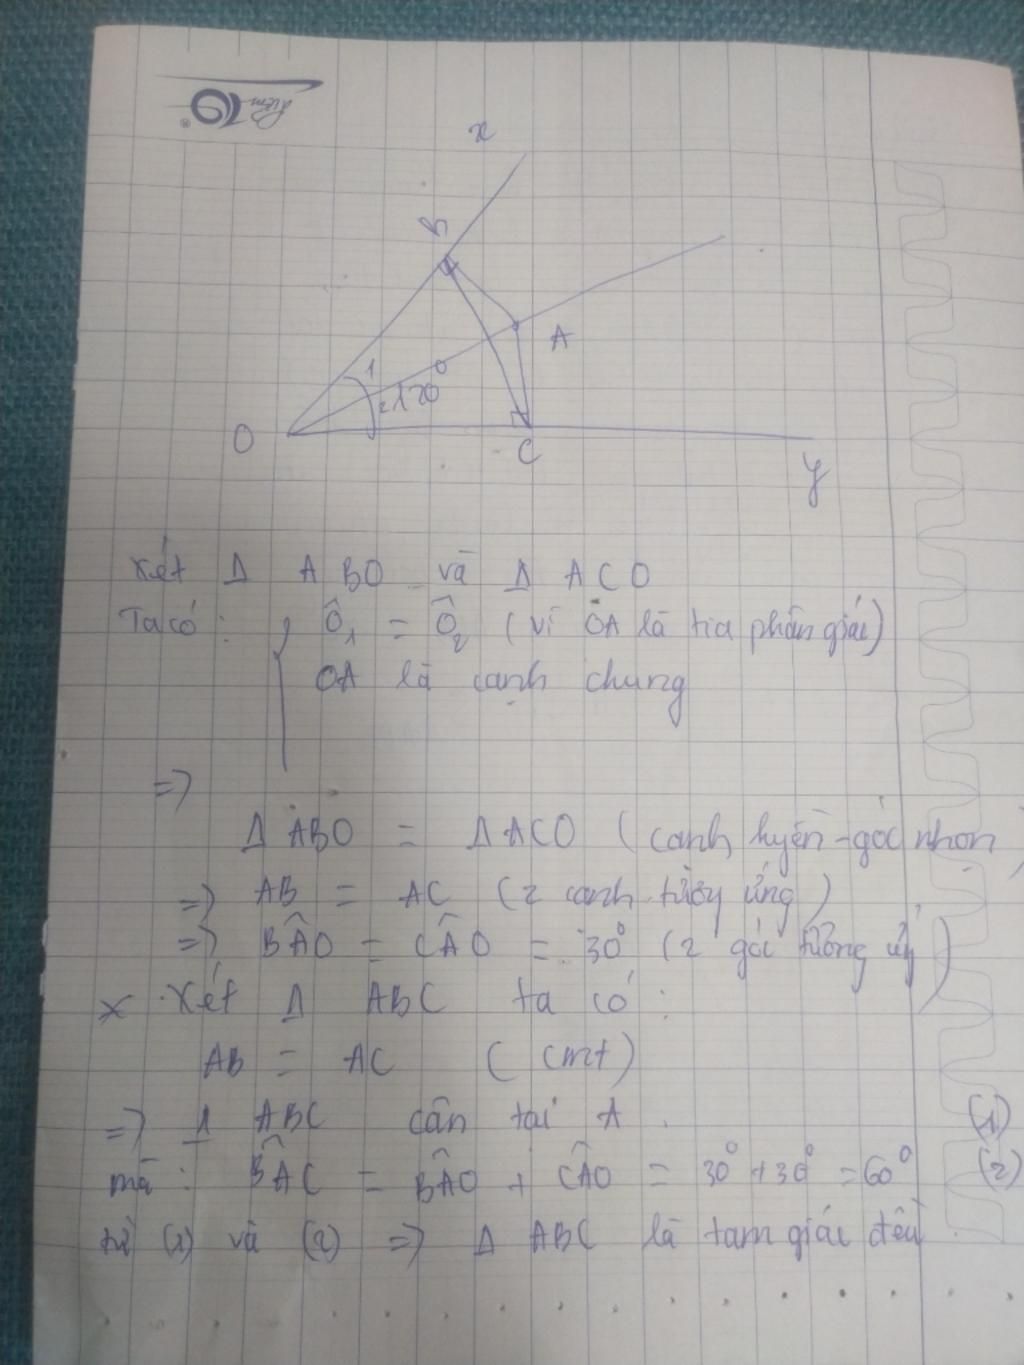 Điểm 10
x
B
A
1
2 120°
O
C
y
Xét Δ ABO và Δ ACO
Ta có : Ô₁ = Ô₂ (vì OA là tia phân giác)
OA là cạnh chung
=>
Δ ABO = Δ ACO (cạnh huyền - góc nhọn)
=> AB = AC (2 cạnh tương ứng)
=> BÂO = CÂO = 30° (2 góc tương ứng)
x Xét Δ ABC ta có :
AB = AC (cmt)
=> Δ ABC cân tại A . (1)
mà : BÂC = BÂO + CÂO = 30° + 30° = 60° (2)
từ (1) và (2) => Δ ABC là tam giác đều